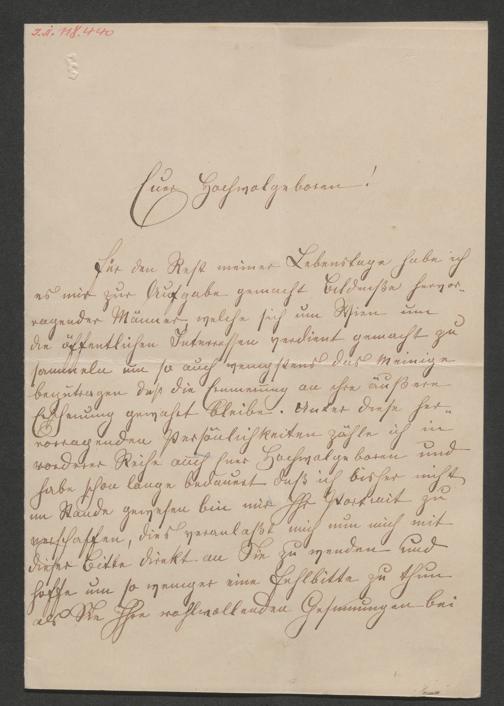 I.N. 118.440
Euer Hochwolgeboren!
Für den Rest meiner Lebenstage habe ich
es mir zur Aufgabe gemacht Bildnisse hervor-
ragender Männer welche sich um Wien um
die öffentlichen Interessen verdient gemacht zu
sammeln um so auch wenigstens das Meinige
beyzutragen daß die Erinnerung an ihre äußere
Erscheinung gewahrt bleibe. Unter diese her-
vorragenden Persönlichkeiten zähle ich in
vorderer Reihe auch Euer Hochwolgeboren und
habe schon lange bedauert daß ich bisher nicht
im Stande gewesen bin mir Ihr Portrait zu
verschaffen, dies veranlaßt mich nun mich mit
dieser Bitte direkt an Sie zu wenden und
hoffe um so weniger eine Fehlbitte zu thun
als Sie Ihre wohlwollenden Gesinnungen bei